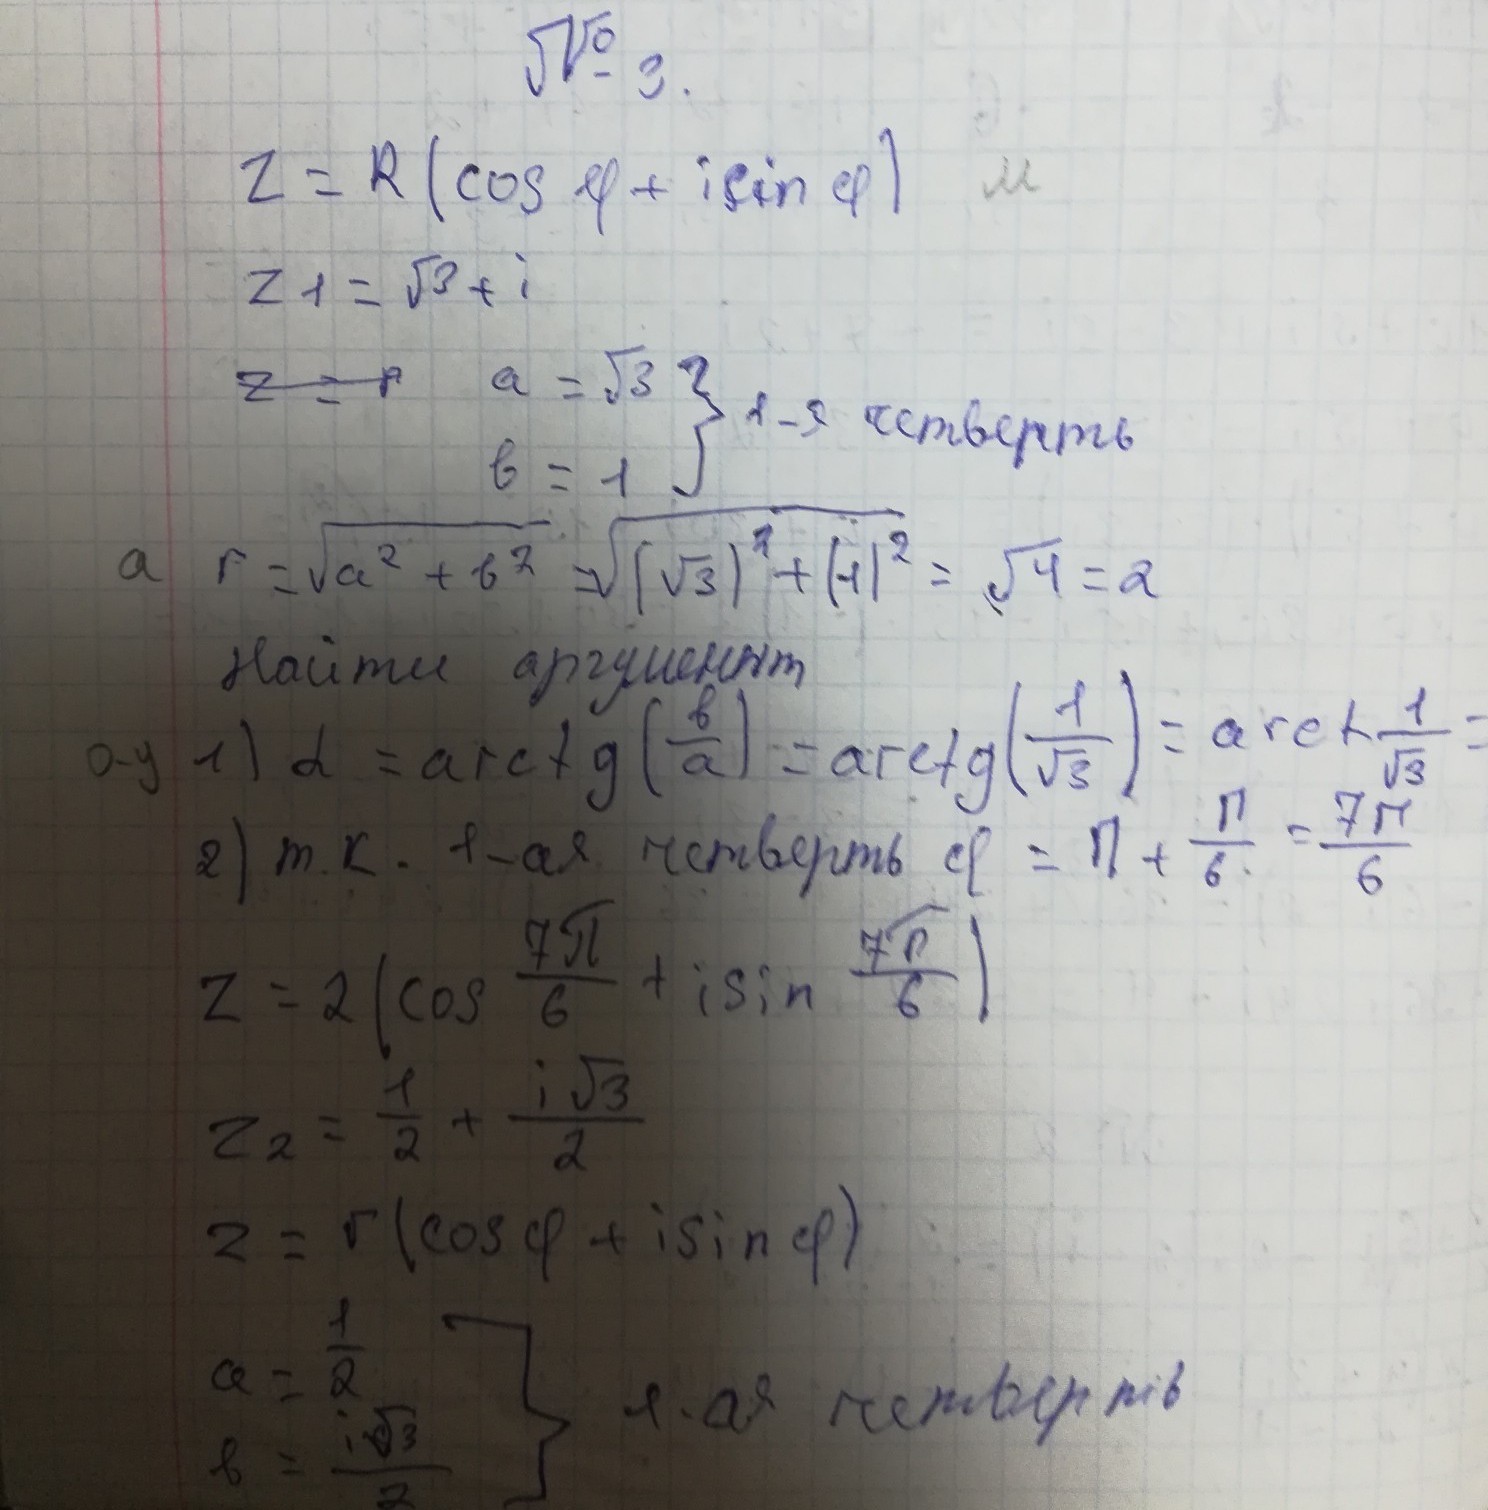 № 3.
Z = R (cos φ + i sin φ)
Z1 = √3 + i
a = √3
b = 1 } 1-я четверть
r = √(a² + b²) = √((√3)² + (1)²) = √4 = 2
Найти аргумент
1) α = arctg (b/a) = arctg (1/√3) = arct 1/√3 =
2) т.к. 1-ая четверть φ = π + π/6 = 7π/6
Z = 2 (cos 7π/6 + i sin 7π/6)
Z2 = 1/2 + i√3/2
Z = r (cos φ + i sin φ)
a = 1/2
b = i√3/2 } 1-ая четверть